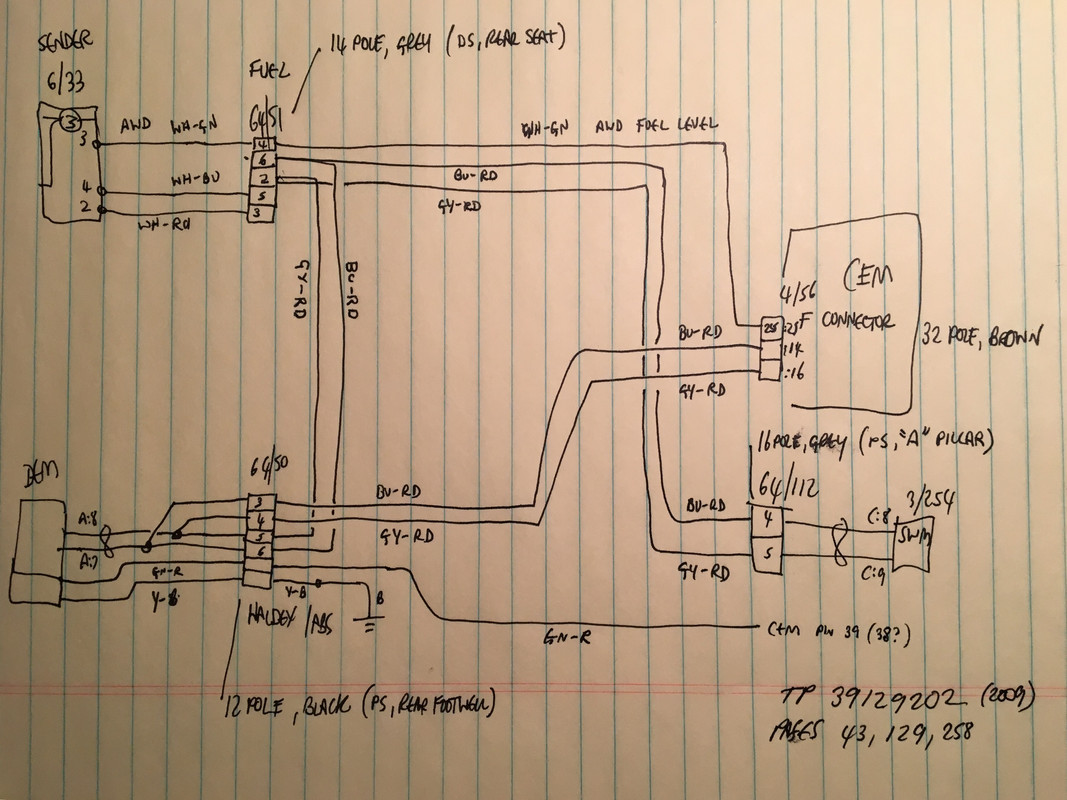 SENDER
6/33
14 POLE, GREY (DS, REAR SEAT)
FUEL
64/51
3
3
AWD WH-GN
4
WH-GN AWD FUEL LEVEL
6
BU-RD
4
WH-BU
2
GY-RD
5
2
WH-RD
3
GY-RD
BU-RD
CEM
4/56
F CONNECTOR
:25
32 POLE, BROWN
BU-RD
:14
:16
GY-RD
16 POLE, GREY (PS, "A" PILLAR)
DEM
64/50
64/112
3/254
3
BU-RD
BU-RD
4
C:8
SWM
A:8
4
GY-RD
5
A:7
6
GY-RD
5
C:9
GN-R
Y-B
Y-B
B
HALDEX/ABS
GN-R
CEM PIN 39 (38?)
12 POLE, BLACK (PS, REAR FOOTWELL)
TP 39129202 (2009)
PAGES 43, 129, 258